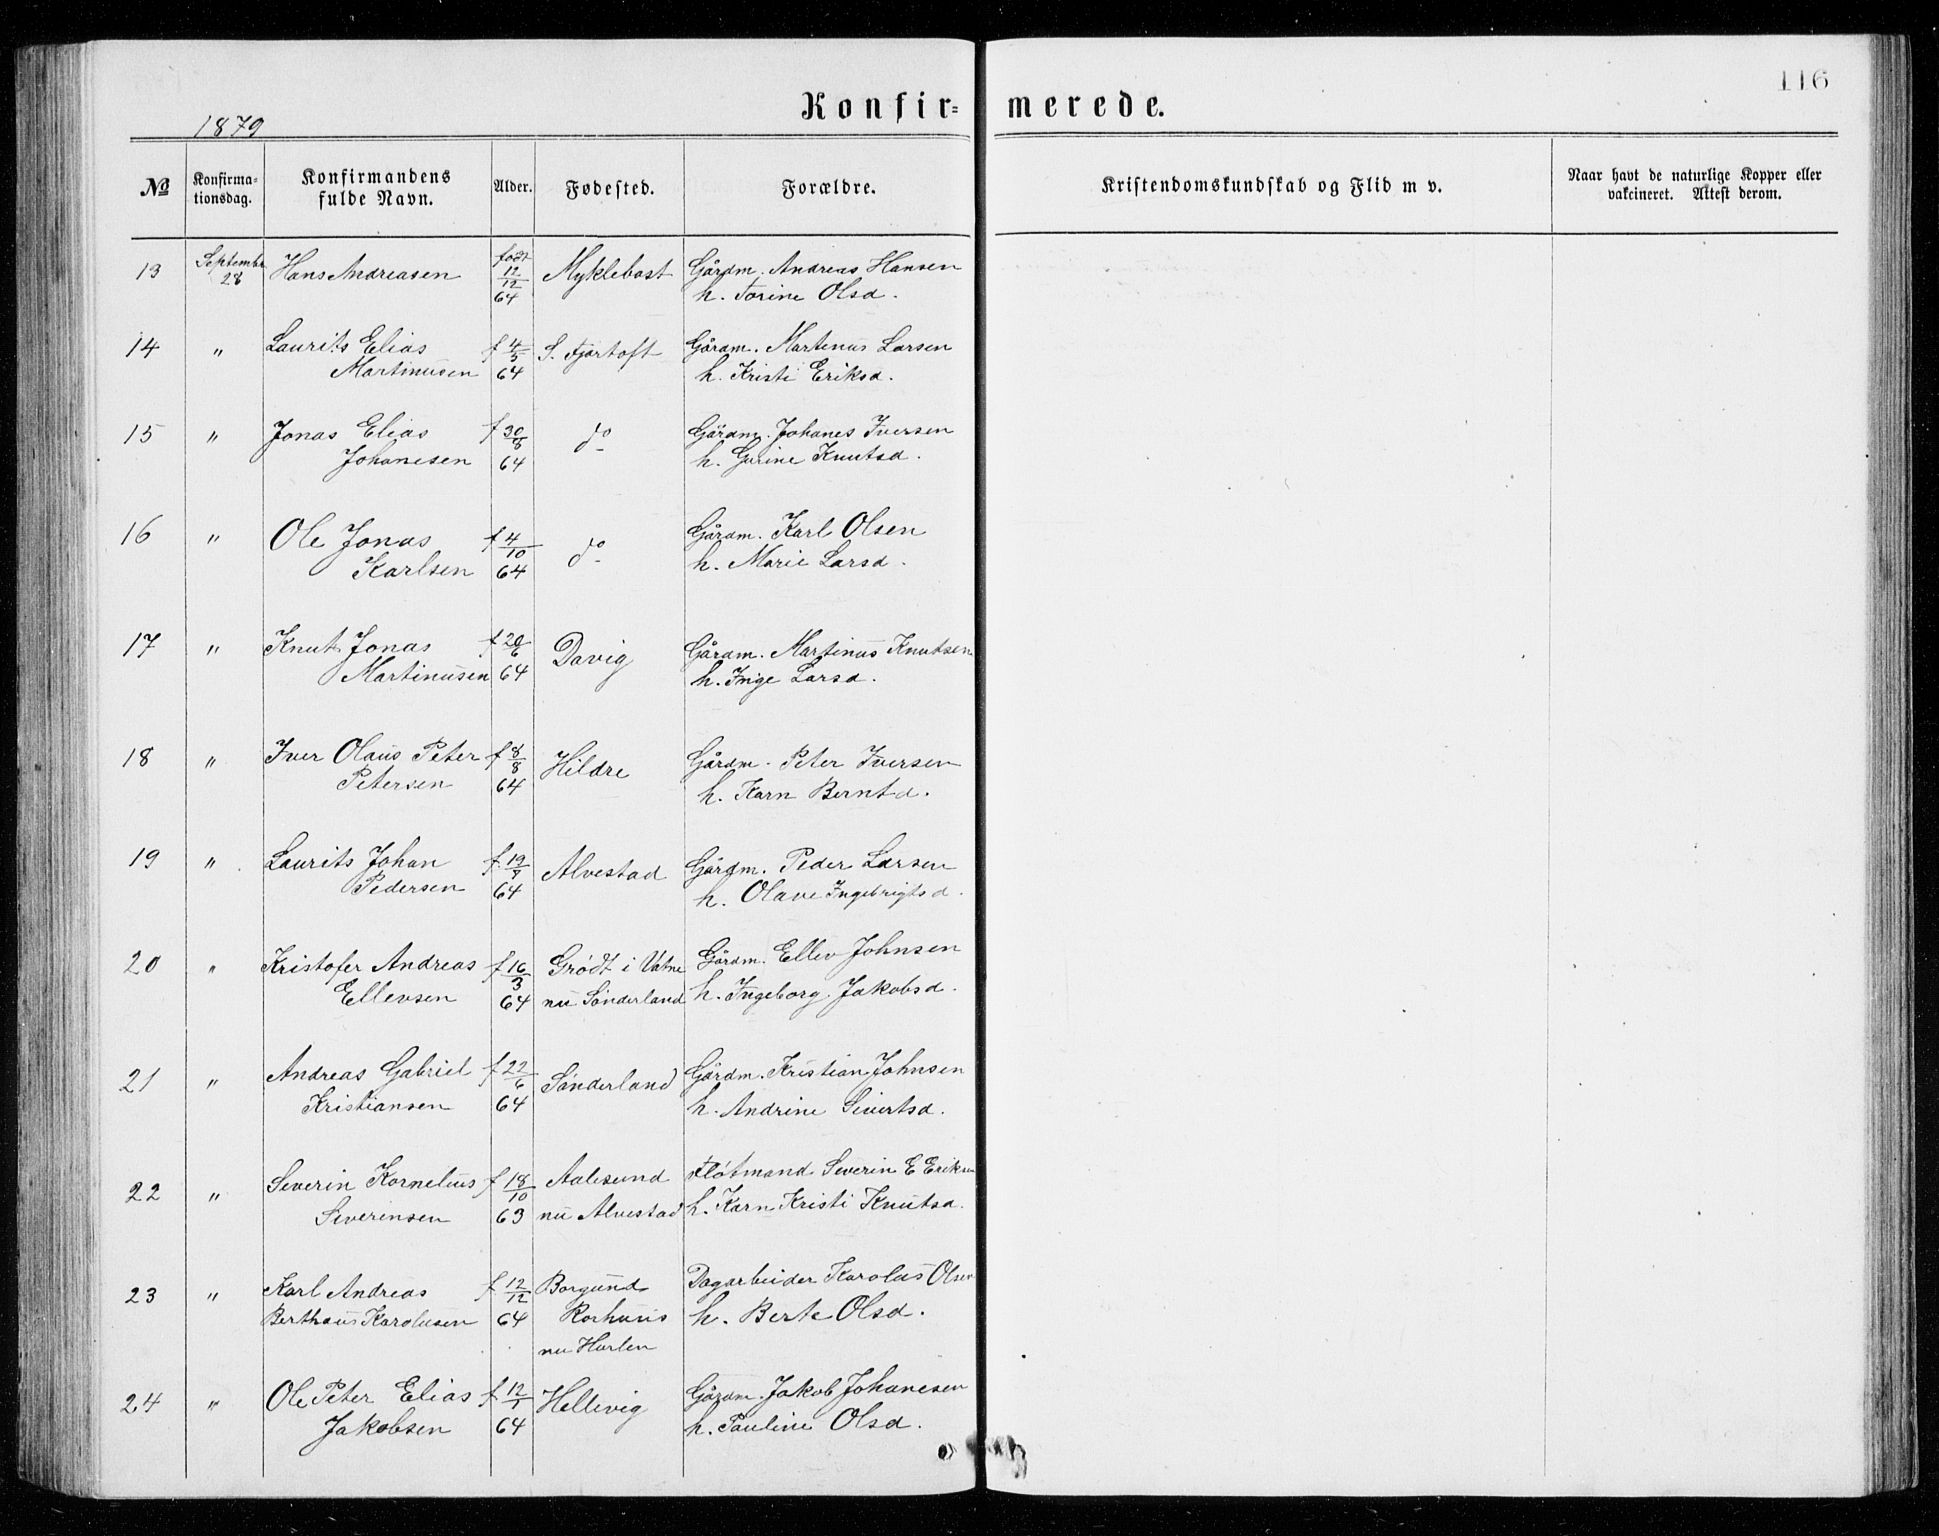 116
Konfir= merede.
1879
No Konfirma= tionsdag. Konfirmandens fulde Navn. Alder. Fødested. Forældre. Kristendomskundskab og Flid m v. Naar havt de naturlige Kopper eller vakcineret. Attest derom.
13 Septembr Hans Andreasen født 12/12 Myklebost Gårdm. Andreas Hansen
28 64 h. Torine Olsd.
14 " Laurits Elias f 4/5 S. Fjørtoft Gårdm. Martenus Larsen
Martinusen 64 h. Kristi Eriksd.
15 " Jonas Elias f 30/8 do Gårdm. Johanes Iversen
Johanesen 64 h. Gurine Knutsd.
16 " Ole Jonas f 4/10 do Gårdm. Karl Olsen
Karlsen 64 h. Marie Larsd.
17 " Knut Jonas f 20/6 Davig Gårdm. Martinus Knutsen
Martinusen 64 h. Inge Larsd.
18 " Iver Olaus Peter f 8/8 Hildre Gårdm. Peter Iversen
Petersen 64 h. Karn Berntd.
19 " Laurits Johan f. 19/7 Alvestad Gårdm. Peder Larsen
Pedersen 64 h. Olave Ingebrigtsd.
20 " Kristofer Andreas f 16/3 Grødt i Vatne Gårdm. Ellev Johnsen
Ellevsen 64 nu Sønderland h. Ingeborg Jakobsd.
21 " Andreas Gabriel f 22/6 Sønderland Gårdm. Kristian Johnsen
Kristiansen 64 h. Andrine Sivertsd.
22 " Severin Kornelius f 18/10 Aalesund Fløtmand Severin E Eriksen
Severinsen 63 nu Alvestad h. Karn Kristi Knutsd.
23 " Karl Andreas f 12/12 Borgund Dagarbeider Karolus Olsen
Berthaus Karolusen 64 h. Berte Olsd.
nu Harlen
24 " Ole Peter Elias f 12/1 Hellevig Gårdm. Jakob Johanesen
Jakobsen 64 h. Pauline Olsd.